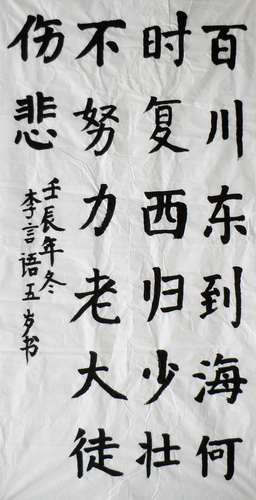 百川东到海何
时复西归少壮
不努力老大徒
伤悲
壬辰年冬
李言语五岁书